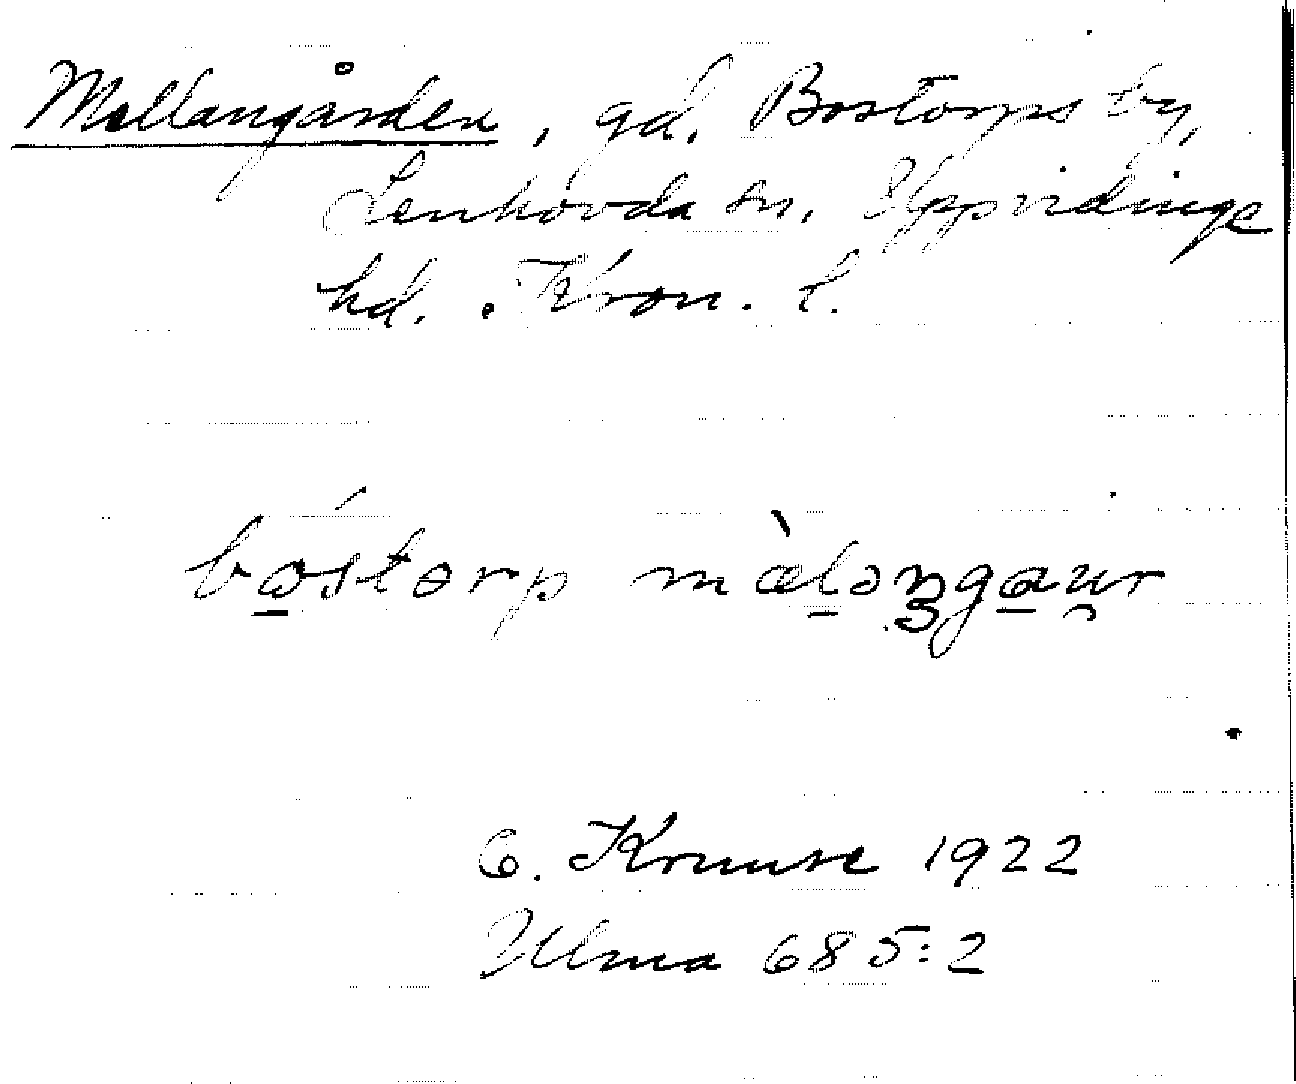 Mellangården, gd. Bostorps by,
Lenhovda sn. Uppvidinge
hd. Kron. l.
bo̲stərp mæ̀l̲ənga̲u̯r
G. Kruuse 1922
Ulma 685:2